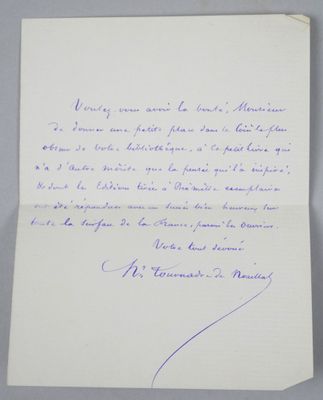 Voulez-vous avoir la bonté, Monsieur
de donner une petite place dans le coin le plus
obscur de votre bibliothèque, à ce petit livre qui
n'a d'autre mérite que la pensée qui l'a inspiré,
& dont les Editions tirées à mille exemplaires
ont été répandues avec un succès bien heureux, sur
toute la surface de la France, parmi les ouvriers.
Votre tout dévoué
Tournade de Noaillat